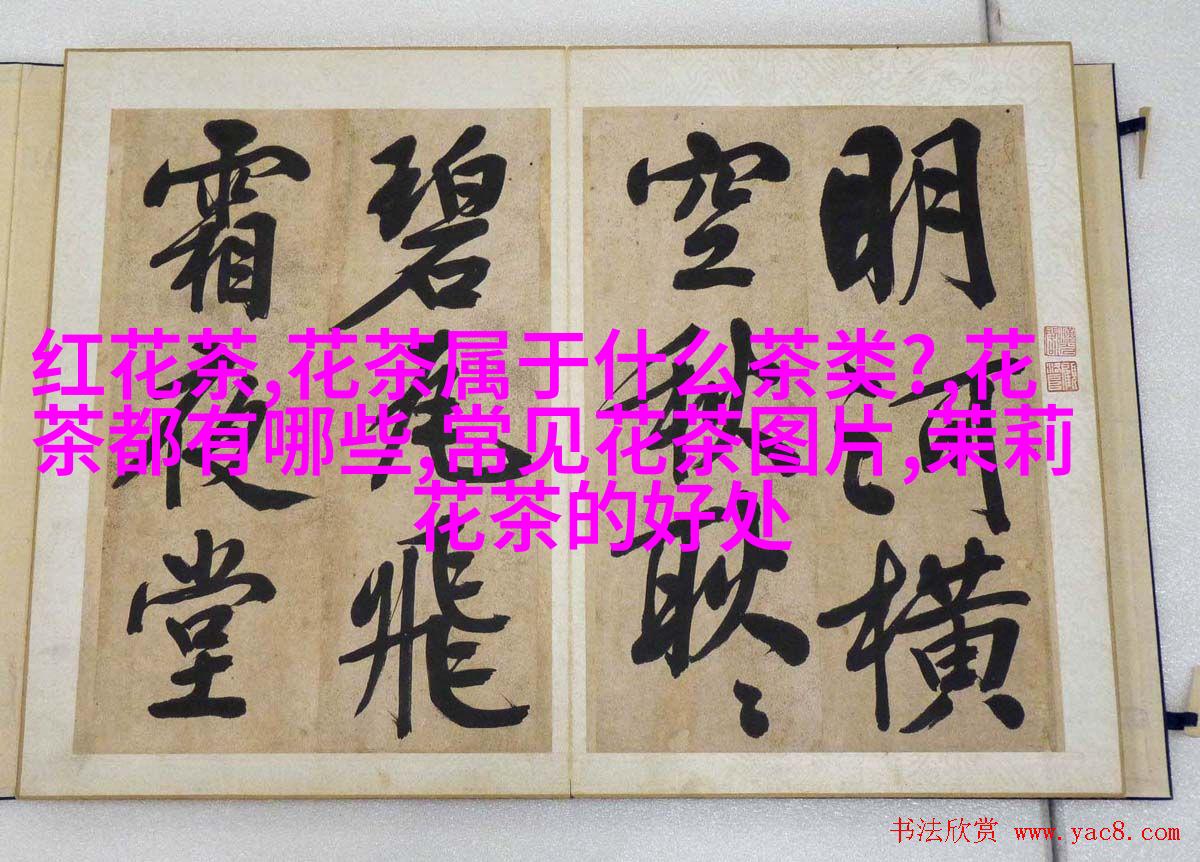 红花茶,花茶属于什么茶类?,花
茶都有哪些,常见花茶图片,茉莉
花茶的好处
明河横
空耿々
碧瓦飛
霜夜堂
书法欣赏 www.yac8.com